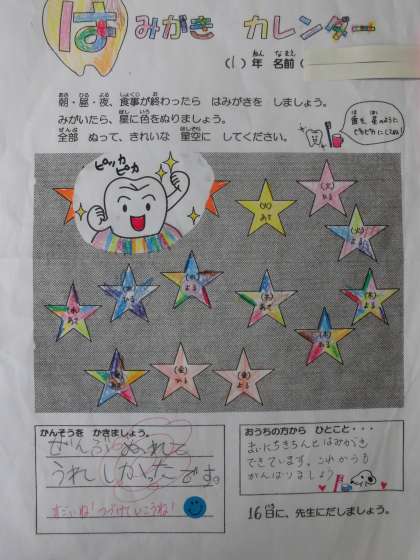 はみがき カレンダー
(1)年 名前(
朝・昼・夜、食事が終わったら はみがきを しましょう。
みがいたら、星に色をぬりましょう。
全部 ぬって、きれいな 星空に してください。
歯を、星のように
ピカピカにしてね
ピッカ
ピカ
(火)
あさ
(火)
ひる
(火)
よる
(水)
あさ
(水)
ひる
(水)
よる
(木)
あさ
(木)
ひる
(木)
よる
(金)
あさ
(金)
ひる
(金)
よる
かんそうを かきましょう。
ぜんぶぬれて
うれしかったです。
すごいね!つづけていこうね!
おうちの方から ひとこと・・・
まいにちきちんとはみがき
できています。これからも
がんばりましょう
16日に、先生にだしましょう。